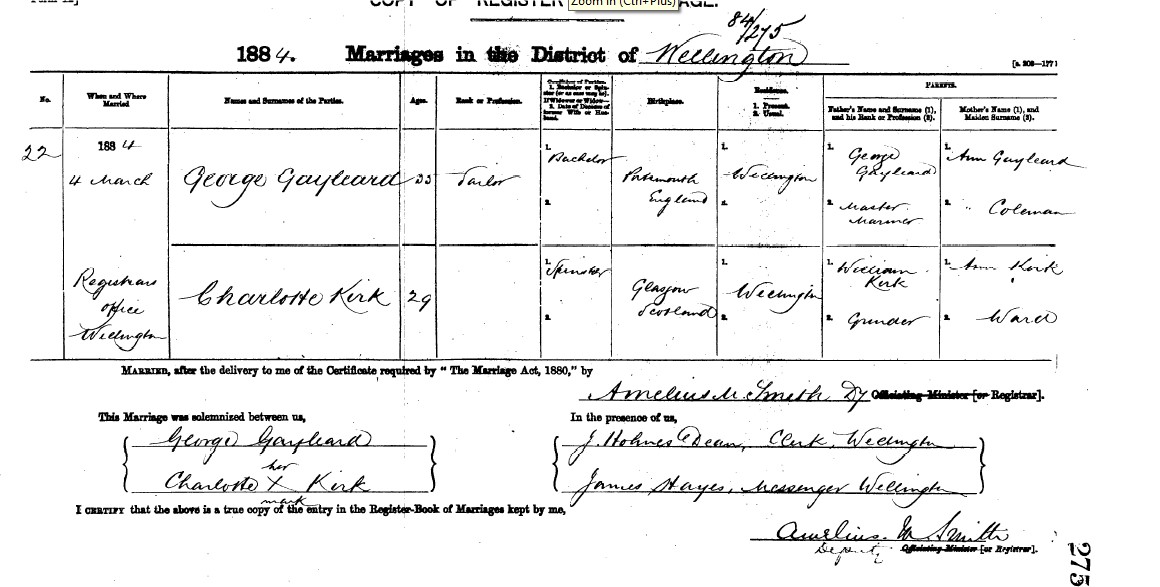 COPY OF REGISTER
Zoom in (Ctrl+Plus)
AGE.
84/275
1884. Marriages in the District of Wellington
[s. 208—177]
No.
When and Where Married
Names and Surnames of the Parties.
Ages.
Rank or Profession.
Condition of Parties.
1. Bachelor or Spinster (or as case may be).
If Widower or Widow—
2. Date of Decease of former Wife or Husband.
Birthplace.
Residence.
1. Present.
2. Usual.
PARENTS.
Father's Name and Surname (1), and his Rank or Profession (2).
Mother's Name (1), and Maiden Surname (2).
22
1884
4 March
George Gayleard
33
Tailor
1. Bachelor
2.
Portsmouth
England
1. Wellington
2.
1. George
Gayleard
2. Master
Mariner
1. Ann Gayleard
2. " Coleman
Registrars
office
Wellington
Charlotte Kirk
29
1. Spinster
2.
Glasgow
Scotland
1. Wellington
2.
1. William
Kirk
2. Grinder
1. Ann Kirk
2. Ward
MARRIED, after the delivery to me of the Certificate required by "The Marriage Act, 1880," by
Amelius M. Smith Dy Officiating Minister [or Registrar].
This Marriage was solemnized between us,
George Gayleard
her
Charlotte X Kirk
mark
In the presence of us,
J. Holmes Dean, Clerk, Wellington
James Hayes, Messenger Wellington
I CERTIFY that the above is a true copy of the entry in the Register-Book of Marriages kept by me,
Amelius M Smith
Deputy Officiating Minister [or Registrar].
275